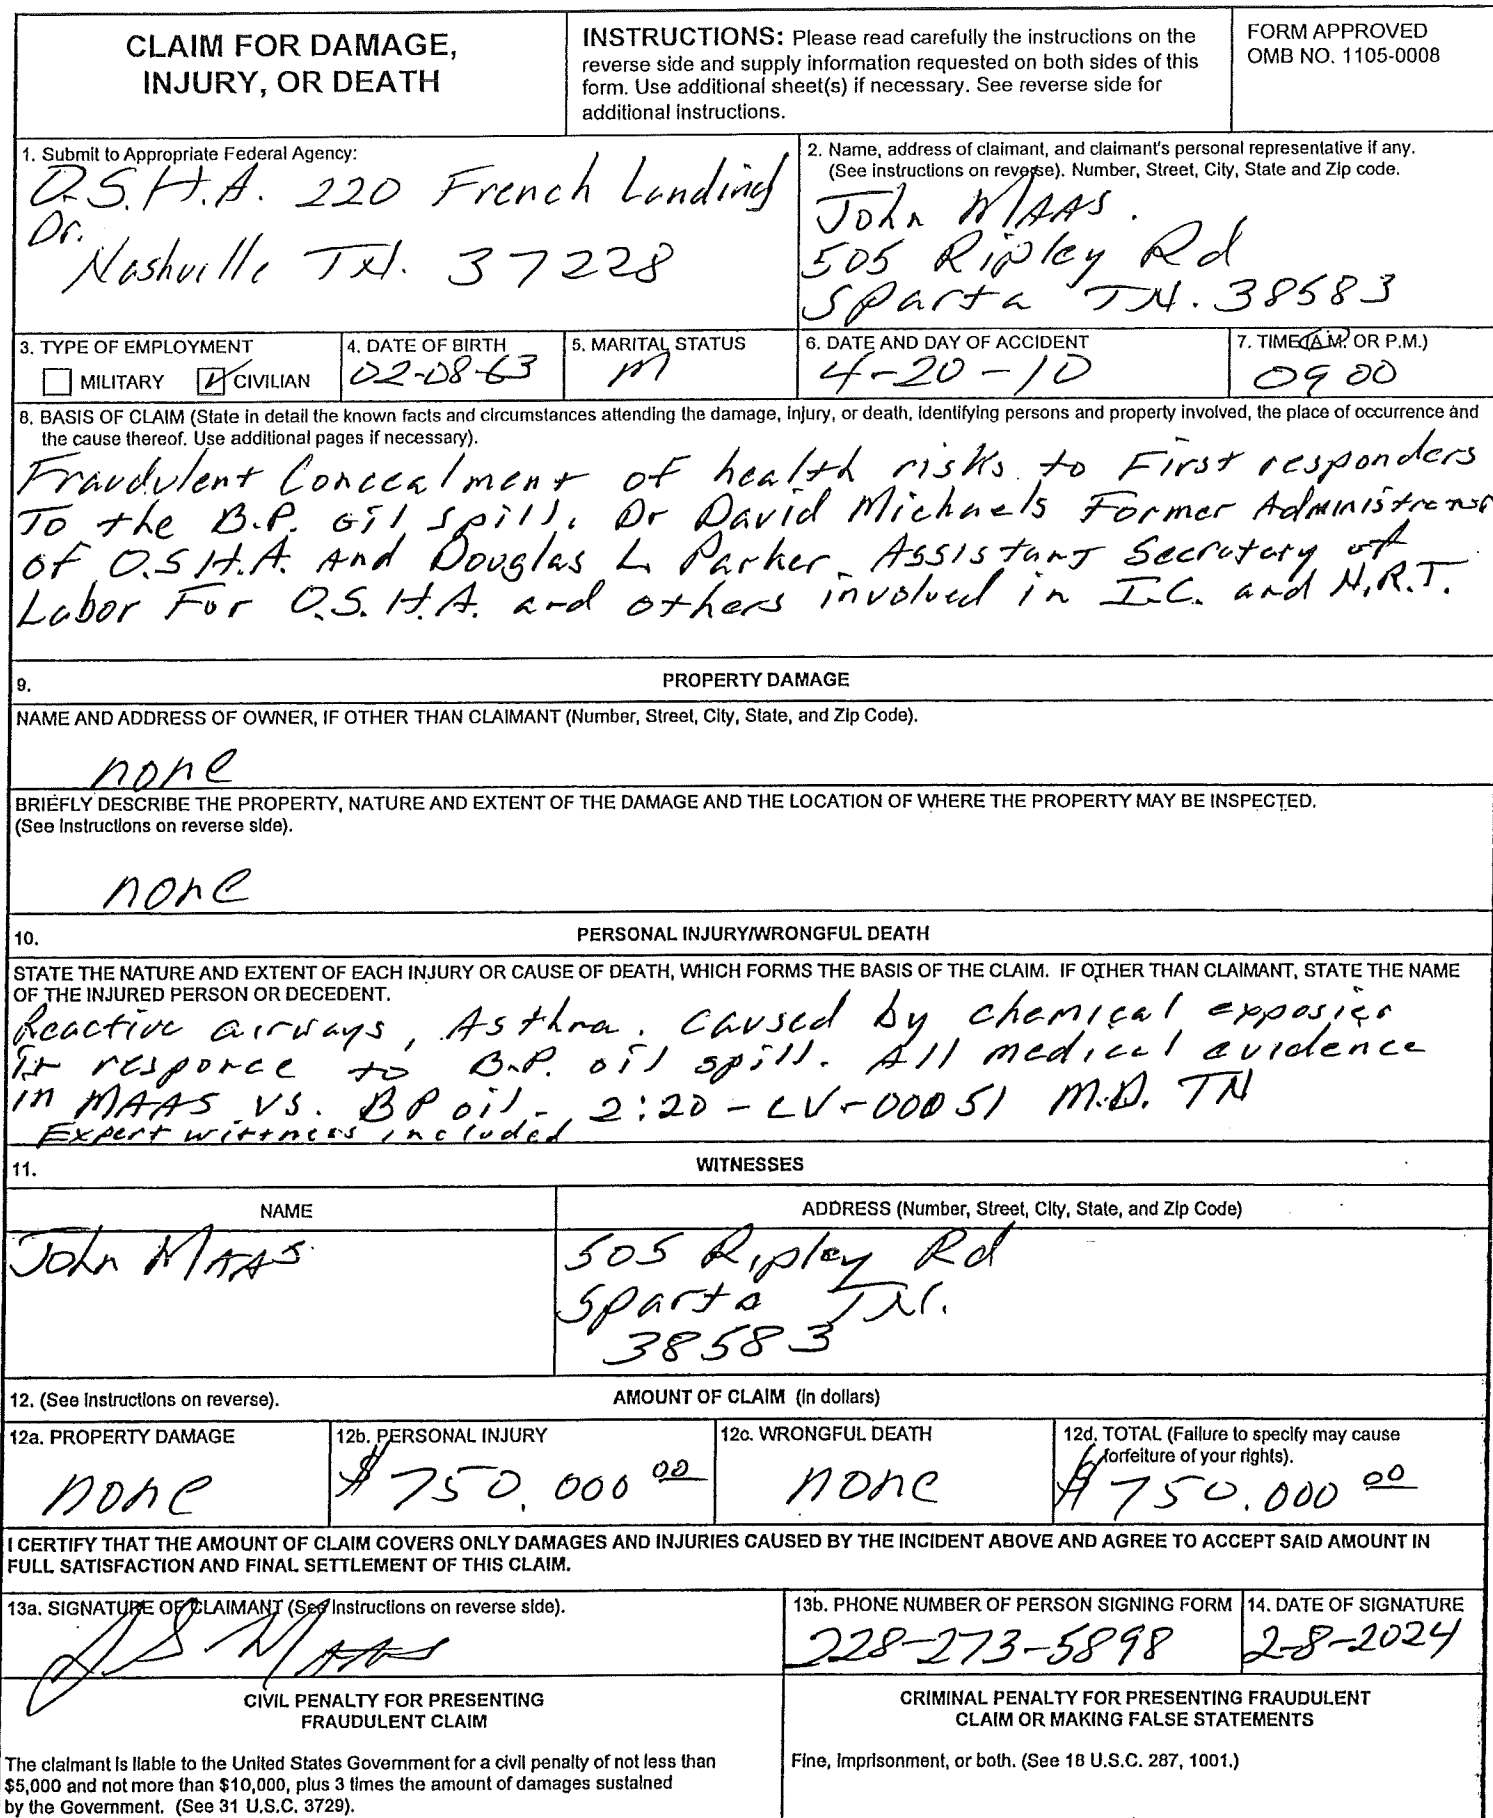 CLAIM FOR DAMAGE,
INJURY, OR DEATH
INSTRUCTIONS: Please read carefully the instructions on the
reverse side and supply information requested on both sides of this
form. Use additional sheet(s) if necessary. See reverse side for
additional instructions.
FORM APPROVED
OMB NO. 1105-0008
1. Submit to Appropriate Federal Agency:
O.S.H.A. 220 French Landing
Dr.
Nashville TN. 37228
2. Name, address of claimant, and claimant's personal representative if any.
(See instructions on reverse). Number, Street, City, State and Zip code.
John MAAS.
505 Ripley Rd
Sparta TN. 38583
3. TYPE OF EMPLOYMENT
MILITARY CIVILIAN
4. DATE OF BIRTH
02-08-63
5. MARITAL STATUS
M
6. DATE AND DAY OF ACCIDENT
4-20-10
7. TIME (A.M. OR P.M.)
0900
8. BASIS OF CLAIM (State in detail the known facts and circumstances attending the damage, injury, or death, identifying persons and property involved, the place of occurrence and
the cause thereof. Use additional pages if necessary).
Fraudulent Concealment of health risks to First responders
To the B.P. oil spill. Dr David Michaels Former
of O.S.H.A. And Douglas L. Parker Assistant Secretary of
Labor For O.S.H.A. and others involved in I.C. and N.R.T.
9. PROPERTY DAMAGE
NAME AND ADDRESS OF OWNER, IF OTHER THAN CLAIMANT (Number, Street, City, State, and Zip Code).
none
BRIEFLY DESCRIBE THE PROPERTY, NATURE AND EXTENT OF THE DAMAGE AND THE LOCATION OF WHERE THE PROPERTY MAY BE INSPECTED.
(See Instructions on reverse side).
none
10. PERSONAL INJURY/WRONGFUL DEATH
STATE THE NATURE AND EXTENT OF EACH INJURY OR CAUSE OF DEATH, WHICH FORMS THE BASIS OF THE CLAIM. IF OTHER THAN CLAIMANT, STATE THE NAME
OF THE INJURED PERSON OR DECEDENT.
Reactive airways, Asthma. caused by chemical
responce to B.P. oil spill. All medical evidence
in MAAS vs. BP oil - 2:20-CV-00051 M.D. TN
Expert wittness included
11. WITNESSES
NAME
ADDRESS (Number, Street, City, State, and Zip Code)
John MAAS
505 Ripley Rd
Sparta TN.
38583
12. (See Instructions on reverse). AMOUNT OF CLAIM (in dollars)
12a. PROPERTY DAMAGE
none
12b. PERSONAL INJURY
$750,000 00
12c. WRONGFUL DEATH
none
12d. TOTAL (Failure to specify may cause
forfeiture of your rights).
$750.000 00
I CERTIFY THAT THE AMOUNT OF CLAIM COVERS ONLY DAMAGES AND INJURIES CAUSED BY THE INCIDENT ABOVE AND AGREE TO ACCEPT SAID AMOUNT IN
FULL SATISFACTION AND FINAL SETTLEMENT OF THIS CLAIM.
13a. SIGNATURE OF CLAIMANT (See Instructions on reverse side).
JS MAAS
13b. PHONE NUMBER OF PERSON SIGNING FORM
228-273-5898
14. DATE OF SIGNATURE
2-8-2024
CIVIL PENALTY FOR PRESENTING
FRAUDULENT CLAIM
The claimant is liable to the United States Government for a civil penalty of not less than
$5,000 and not more than $10,000, plus 3 times the amount of damages sustained
by the Government. (See 31 U.S.C. 3729).
CRIMINAL PENALTY FOR PRESENTING FRAUDULENT
CLAIM OR MAKING FALSE STATEMENTS
Fine, imprisonment, or both. (See 18 U.S.C. 287, 1001.)